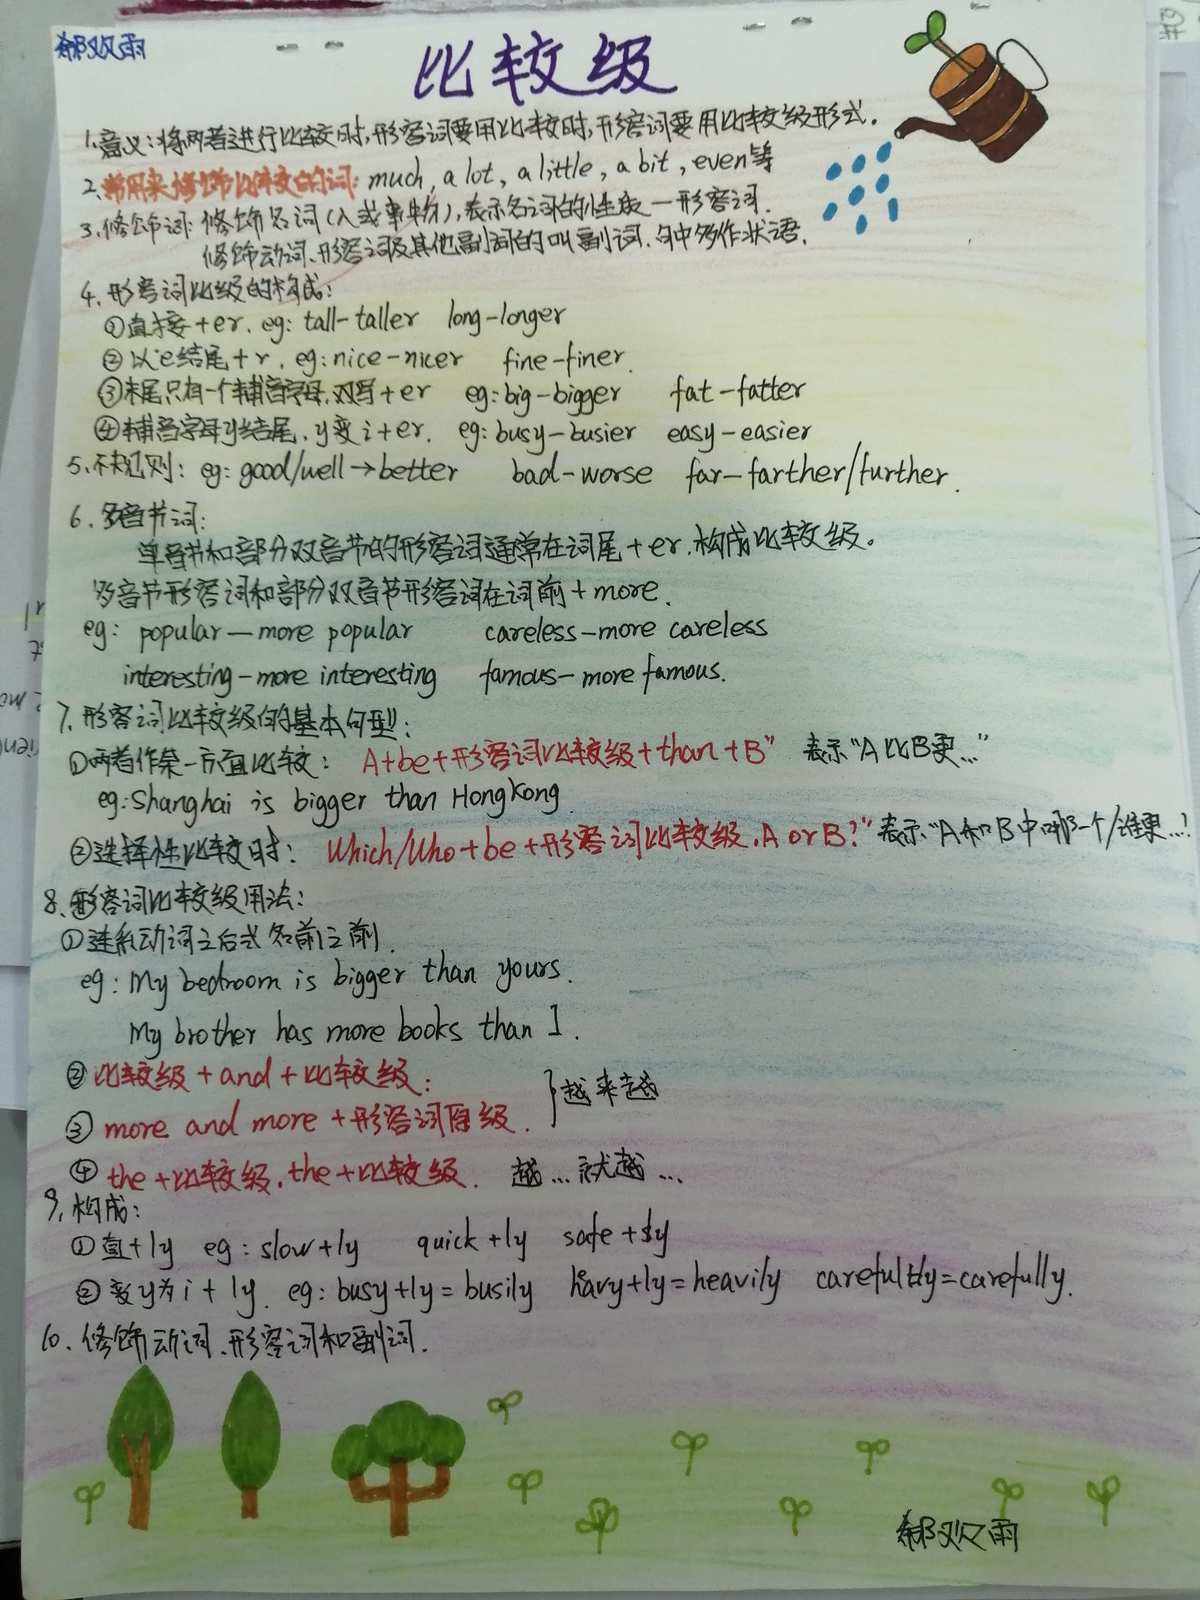 郗双雨
比较级
1.意义:将两者进行比较时,形容词要用比较时,形容词要用比较级形式.
2.常用来修饰比较的词: much, a lot, a little, a bit, even等
3.修饰词: 修饰名词(人或事物),表示名词的性质—形容词.
修饰动词、形容词及其他副词的叫副词.句中多作状语.
4.形容词比级的构成:
①直接+er. eg: tall-taller long-longer
②以e结尾+r. eg: nice-nicer fine-finer.
③末尾只有一个辅音字母,双写+er eg: big-bigger fat-fatter
④辅音字母y结尾,y变i+er. eg: busy-busier easy-easier
5.不规则: eg: good/well→better bad-worse far-farther/further.
6.多音节词:
单音节和部分双音节的形容词通常在词尾+er.构成比较级。
多音节形容词和部分双音节形容词在词前+more.
eg: popular—more popular careless-more careless
interesting-more interesting famous-more famous.
7.形容词比较级的基本句型:
①两者作某一方面比较: A+be+形容词比较级+than+B" 表示"A比B更..."
eg: Shanghai is bigger than HongKong
②选择性比较时: Which/Who+be+形容词比较级,A or B?" 表示"A和B中哪一个/谁更...?
8.形容词比较级用法:
①连系动词之后或名前之前.
eg: My bedroom is bigger than yours.
My brother has more books than I.
②比较级+and+比较级:
③more and more+形容词原级.
}越来越
④the+比较级,the+比较级. 越...就越...
9.构成:
①直+ly eg: slow+ly quick+ly safe+ly
②变y为i+ly. eg: busy+ly=busily heavy+ly=heavily careful+ly=carefully.
10.修饰动词、形容词和副词.
郗双雨